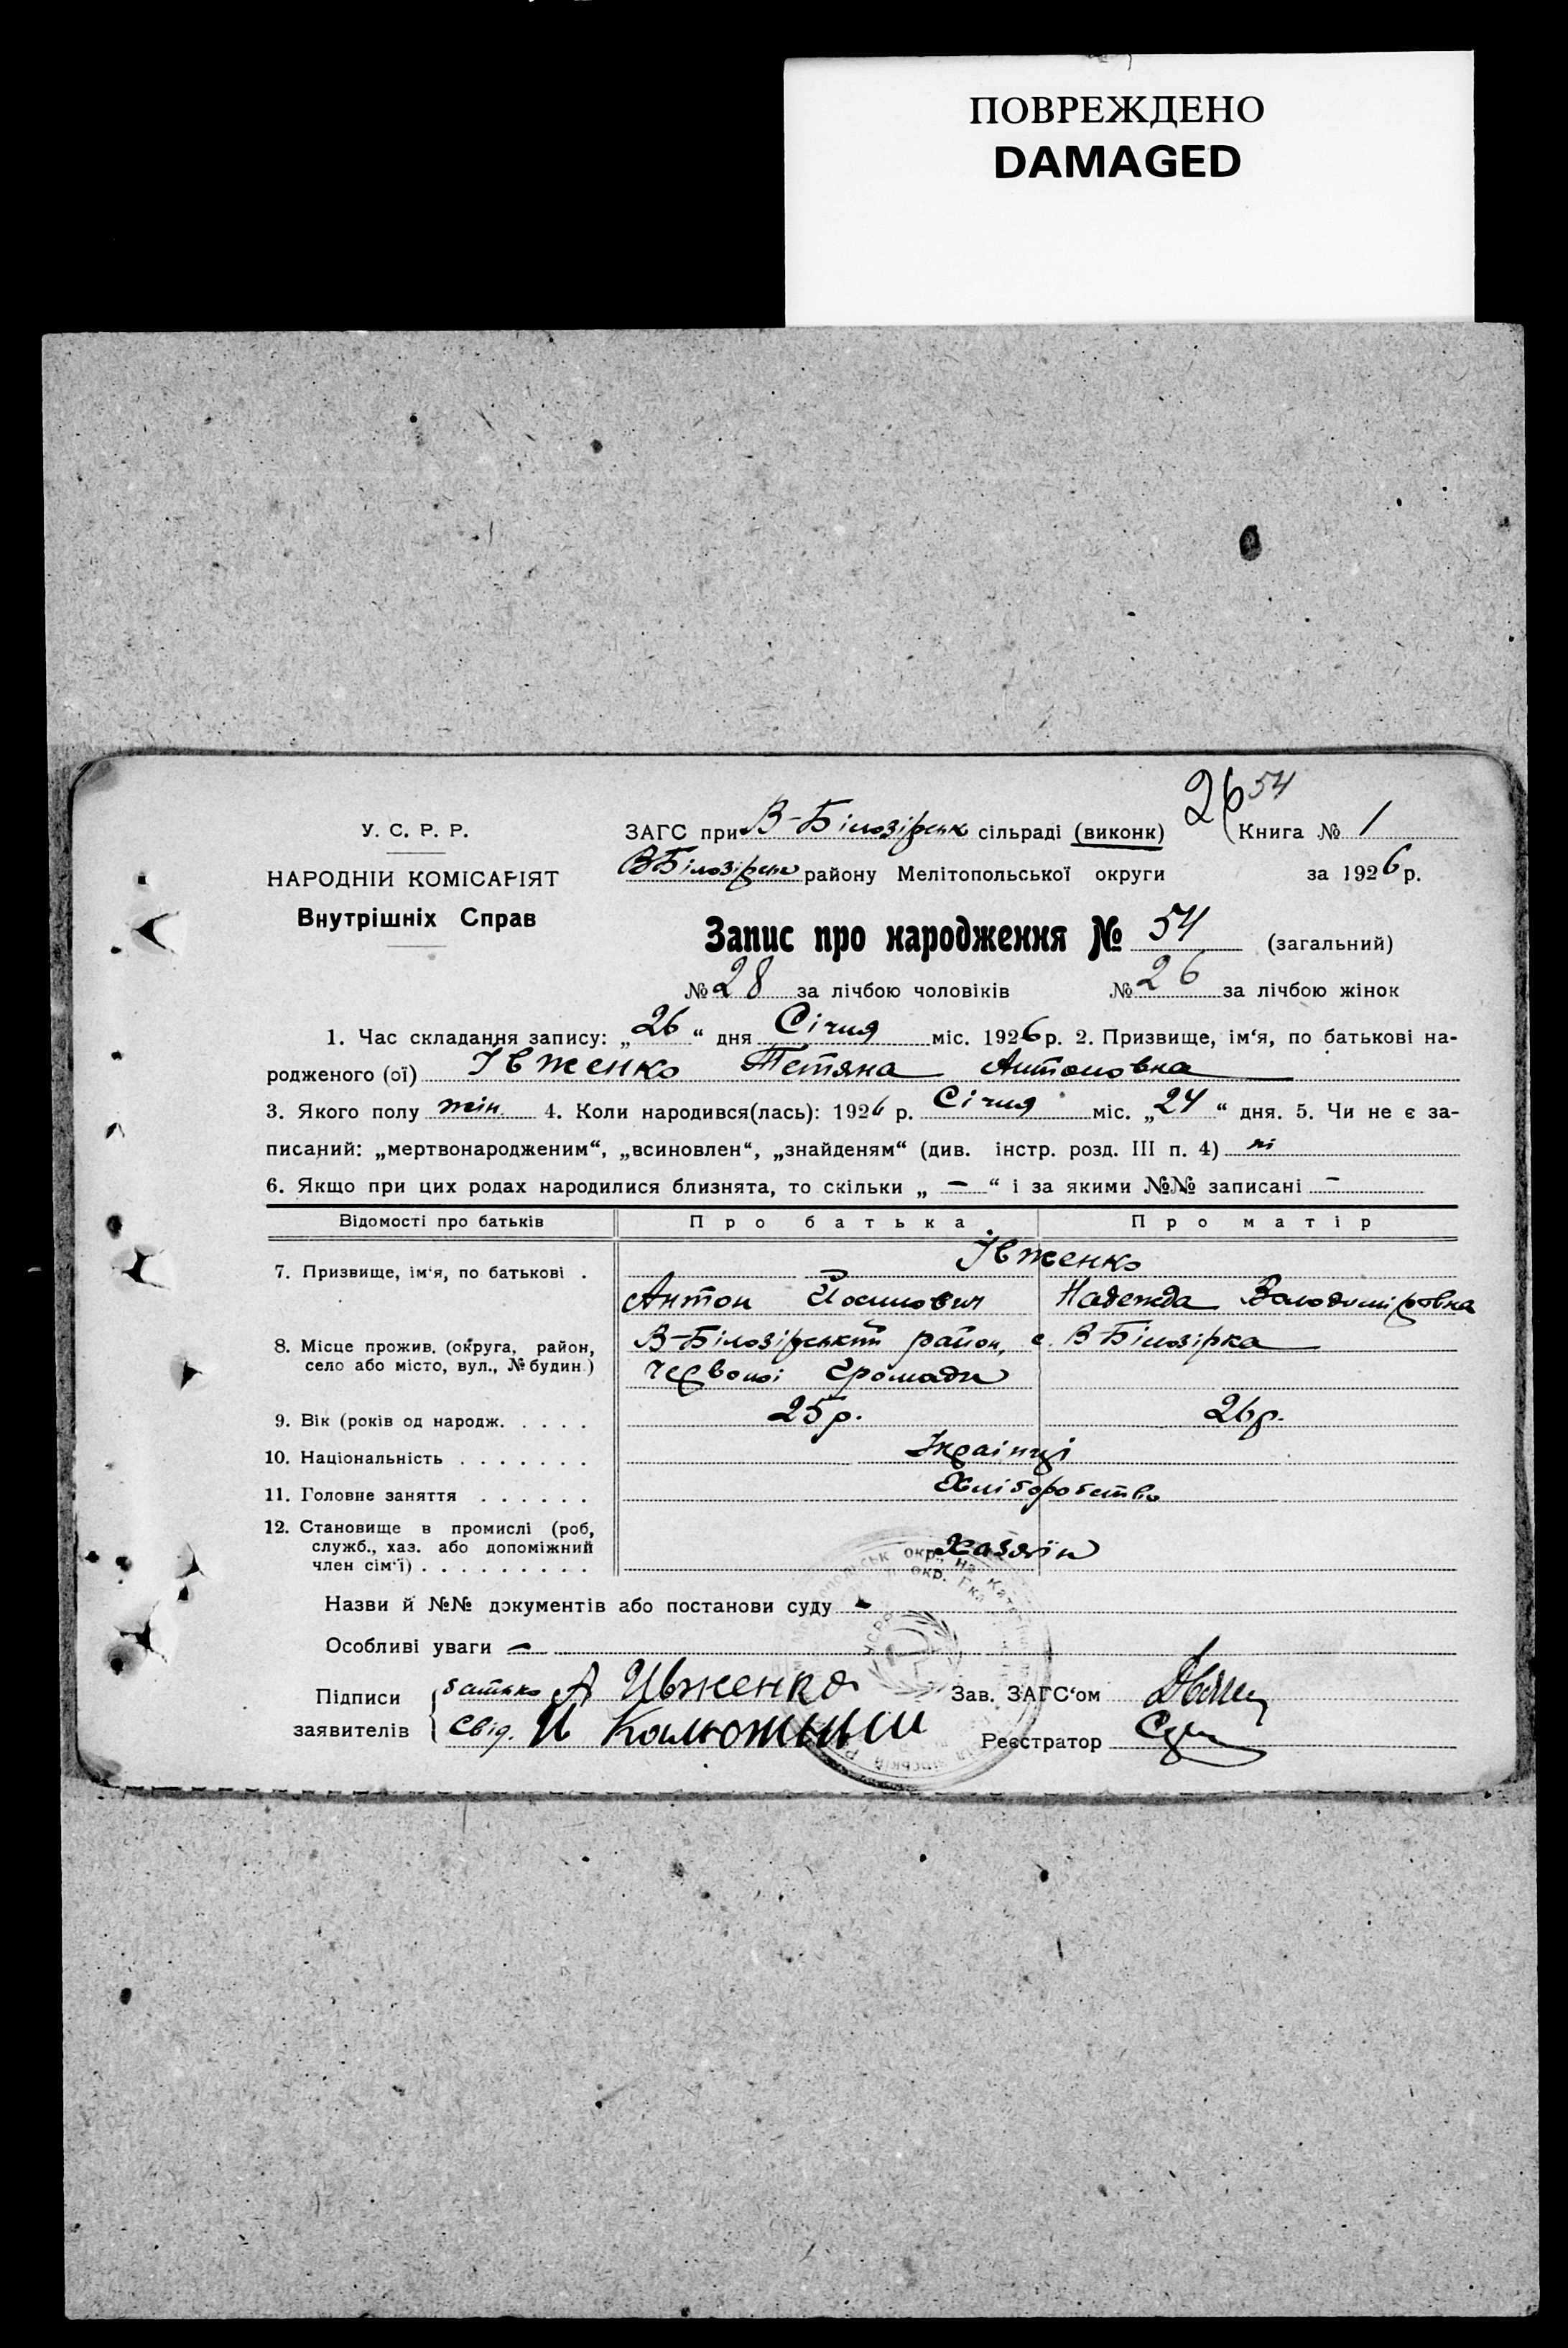 ПОВРЕЖДЕНО
DAMAGED
26 54
У. С. Р. Р.
ЗАГС при В-Білозірськ сільраді (виконк) Книга № 1
НАРОДНІЙ КОМІСАРІЯТ
В Білозірськ району Мелітопольської округи за 1926 р.
Внутрішніх Справ
Запис про народження № 54 (загальний)
№ 28 за лічбою чоловіків № 26 за лічбою жінок
1. Час складання запису: „26“ дня Січня міс. 1926 р. 2. Призвище, ім‘я, по батькові на-
родженого (ої) Івженко Тетяна Антоновна
3. Якого полу жін. 4. Коли народився(лась): 1926 р. Січня міс. „24“ дня. 5. Чи не є за-
писаний: „мертвонародженим“, „всиновлен“, „знайденям“ (див. інстр. розд. III п. 4) ні
6. Якщо при цих родах народилися близнята, то скільки „ — “ і за якими №№ записані —
Відомості про батьків Про батька Про матір
Івженко
7. Призвище, ім‘я, по батькові .
Антон Йосипович Надежда Володимировна
8. Місце прожив. (округа, район, село або місто, вул., № будин.)
В-Білозірський район, с. В-Білозірка
Червоної Громади
9. Вік (років од народж. . . . . 25 р. 26 р.
10. Національність . . . . . . . Українці
11. Головне заняття . . . . . . Хліборобство
12. Становище в промислі (роб,
служб., хаз. або допоміжний
член сім‘ї) . . . . . . . . . Хазяїн
Назви й №№ документів або постанови суду —
Особливі уваги —
Підписи батько А Ивженко Зав. ЗАГС‘ом
заявителів Свід. И Калюжный Реєстратор